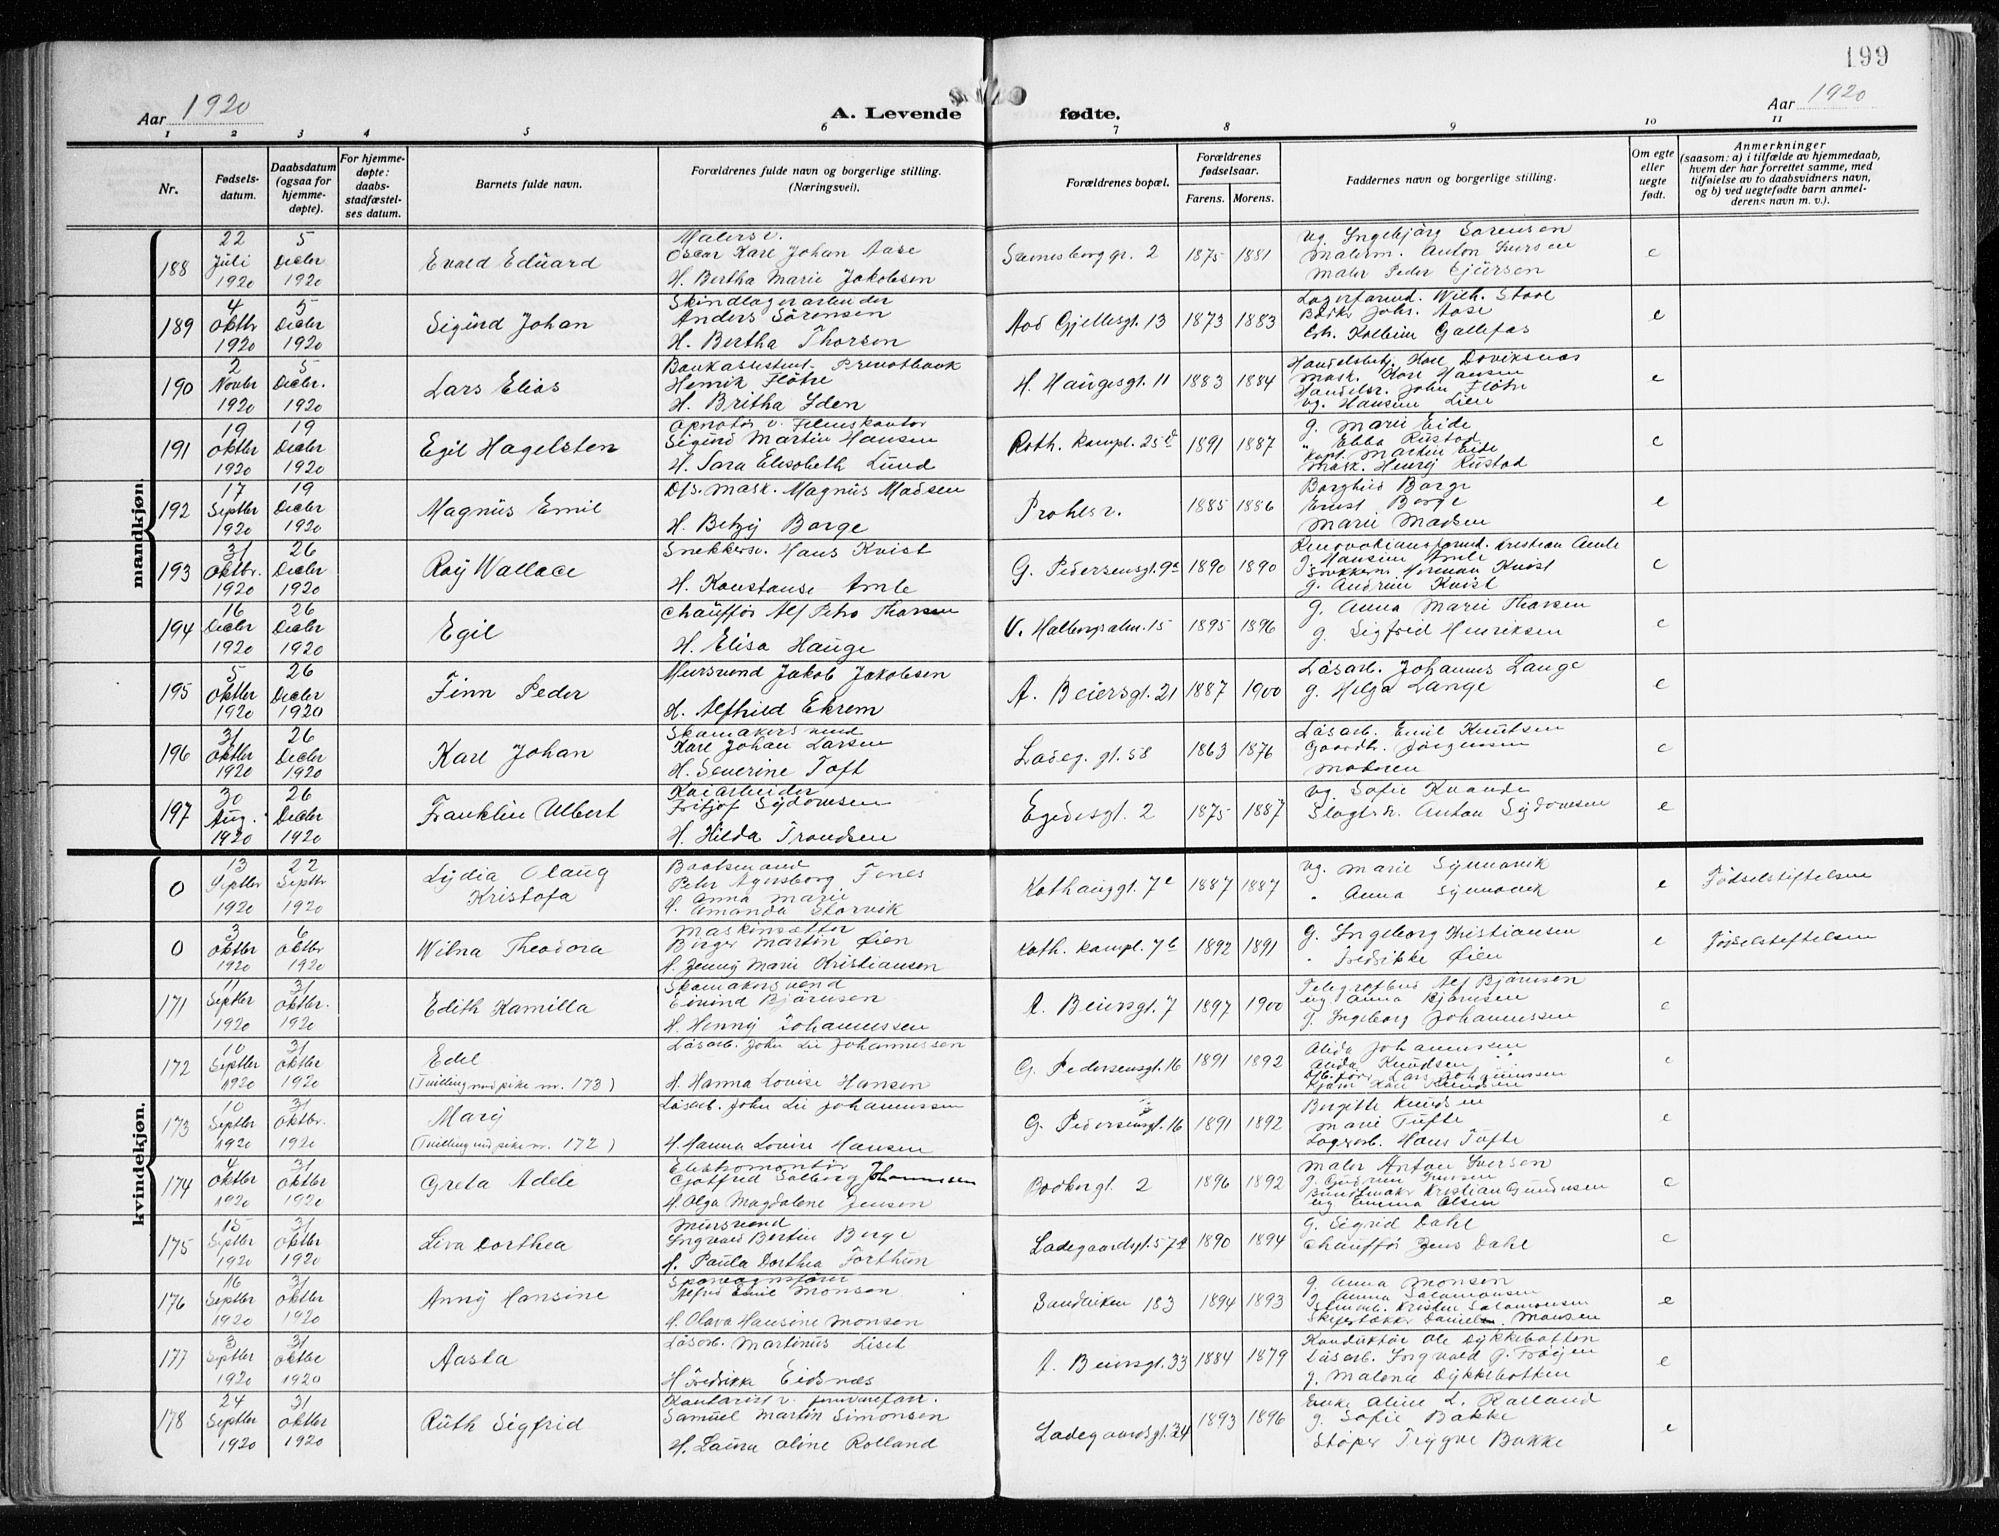 199
Aar 1920
A. Levende fødte.
Aar 1920
1 2 3 4 5 6 7 8 9 10 11
Nr.
Fødsels-
datum.
Daabsdatum
(ogsaa for
hjemme-
døpte).
For hjemme-
døpte:
daabs-
stadfæstel-
ses datum.
Barnets fulde navn.
Forældrenes fulde navn og borgerlige stilling.
(Næringsvei).
Forældrenes bopæl.
Forældrenes
fødselsaar.
Farens. Morens.
Faddernes navn og borgerlige stilling.
Om egte
eller
uegte
født.
Anmerkninger
(saasom: a) i tilfælde av hjemmedaab,
hvem der har forrettet samme, med
tilføielse av to daabsvidners navn,
og b) ved uegtefødte barn anmel-
derens navn m. v.).
mandkjøn.
188
22 Juli 1920
5 Decbr 1920
Evald Edüard
Malersv.
Oscar Karl Johan Aase
H. Bertha Marie Jakobsen
2
1875 1881
Ug. Ingebjørg Sørensen
Malerm. Anton Iversen
Maler Peder
e
189
4 Oktbr 1920
5 Decbr 1920
Sigürd Johan
Skindlagerarbeider
Anders Sørensen
H. Bertha Thorsen
Aad Gjellesgt. 13
1873 1883
Lagerformd. Wilh.
Johs. Aase
e
190
2 Novbr 1920
5 Decbr. 1920
Lars Elias
Bankassistent Privatbank
Henrik Fløtre
H. Britha Iden
H. Haugesgt. 11
1883 1884
Mask. Karl Hansen
Handelsr. John Fløtre
Ug. Hansine Lien
e
191
19 Oktbr 1920
19 Decbr 1920
Egil Hagelsten
Sigurd Martin Hansen
H. Sara Elisabeth Lund
Roth. kampl. 25d
1891 1887
g. Marie Eide
" Ebba Rustad
Kapt. Martin Eide
Mask. Henry Rustad
e
192
17 Septbr 1920
19 Decbr 1920
Magnüs Emil
D/s. mask. Magnus Madsen
H. Betzy Borge
1885 1886
Borghild Borge
Ernst Borge
Marie Madsen
e
193
31 Oktbr. 1920
26 Decbr 1920
Roy Wallace
Snekkersv. Hans Kvist
H. Konstanse Amle
G. Pedersensgt. 9a
1890 1890
Renovationsformd. Kristian Amle
g. Hansine Amle
Snekkerm Herman Kvist
g. Andrine Kvist
e
194
16 Decbr 1920
26 Decbr 1920
Egil
Chauffør Alf Petro Thorsen
H. Elisa Hauge
V. Holbergsalm. 15
1895 1896
g. Anna Marie Thorsen
g. Sigfrid Henriksen
e
195
5 Oktbr 1920
26 Decbr 1920
Finn Peder
Mursvend Jakob Jakobsen
H. Alfhild Ekrem
A. Beiersgt. 21
1887 1900
Løsarb. Johannes Lange
g. Helga Lange
e
196
31 Oktbr 1920
26 Decbr 1920
Karl Johan
Skomakersvend
Karl Johan Larsen
H. Severine Toft
Ladeg. gt. 58
1863 1876
Løsarb. Emil Knutsen
Gaardbr. Jørgensen
Moderen
e
197
30 Aug. 1920
26 Decbr 1920
Franklin Albert
Kaiarbeider
Fritjof Sydonesen
H. Hilda Trondsen
Egedesgt. 2
1875 1887
Ug. Sofie Kvande
Anton Sydonesen
e
kvindekjøn.
0
13 Septbr 1920
22 Septbr 1920
Lydia Olaug
Kristofa
Baatsmand
Peter Fones
H. Anna Marie
Amanda Storvik
Kothauggt. 7c
1887 1887
Ug. Marie Synnavik
" Anna Synnavik
e
Fødselstiftelsen
0
3 Oktbr 1920
6 Oktbr 1920
Wilna Theodora
Maskinsætter
Birger Martin Øien
H. Jenny Marie Kristiansen
Roth. kampl. 7b
1892 1891
g. Ingeborg Kristiansen
" Fredrikke Øien
e
Fødselstiftelsen
171
11 Septbr 1920
31 Oktbr. 1920
Edith Kamilla
Skomakersvend
Eivind Bjørnsen
H. Henny Johannessen
A. Beiersgt. 7
1897 1900
Telegrafbud Alf Bjørnsen
ug. Anna Bjørnsen
g. Ingeborg Johannessen
e
172
10 Septbr 1920
31 Oktbr 1920
Edel
(Tvilling med pike nr. 173)
Løsarb. John Lie Johannessen
H. Hanna Lovise Hansen
G. Pedersensgt. 16
1891 1892
Alida Johannessen
Alida Knudsen
Lars Johannessen
Karl Knudsen
e
173
10 Septbr 1920
31 Oktbr. 1920
Mary
(Tvilling med pike nr. 172)
Løsarb. John Lie Johannessen
H. Hanna Lovise Hansen
G. Pedersensgt. 16
1891 1892
Birgitte Knudsen
Marie Tufte
Lagerarb. Hans Tufte
e
174
4 Oktbr 1920
31 Oktbr 1920
Greta Adele
Elektromontør
Gotfred Solberg Johannesen
H. Olga Magdalene Jensen
Bødkergt. 2
1896 1892
Maler Anton Iversen
g. Gudrun Iversen
Buntmaker Kristian Gundersen
ug Emma Olsen
e
175
15 Septbr 1920
31 Oktbr 1920
Liva Dorthea
Mursvend
Ingvald Bertin Berge
H. Paula Dorthea Forthun
Ladegaardsgt. 57a
1890 1894
g. Sigrid Dahl
Chauffør Jens Dahl
e
176
16 Septbr 1920
31 Oktbr 1920
Anny Hansine
Sporvognsfører
Alfred Emil Monsen
H. Olava Hansine Monsen
Sandviken 183
1894 1893
g. Anna Monsen
g. Anna Salamonsen
Kristen Salamonsen
Daniel Monsen
e
177
3 Septbr 1920
31 Oktbr 1920
Aasta
Løsarb. Martinus Liset
H. Fredrikke Eidsnes
A. Beiersgt. 33
1884 1879
Konduktør Ole Dykkebotten
Løsarb. Ingvald G. Frøyen
g. Malena Dykkebotten
e
178
24 Septbr 1920
31 Oktbr 1920
Rüth Sigfrid
Kontorist v.
Samuel Martin Simonsen
H. Laura Oline Rolland
Ladegaardsgt. 34
1893 1896
Enke Oline L. Rolland
g. Sofie Bakke
Støper Trygve Bakke
e